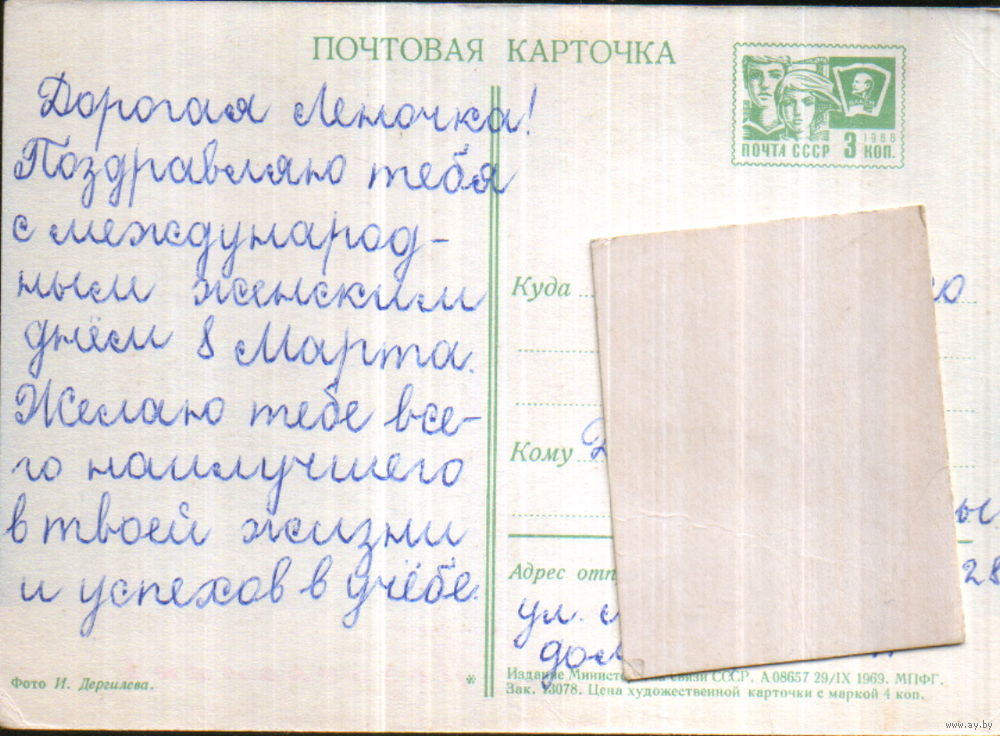 ПОЧТОВАЯ КАРТОЧКА
ПОЧТА СССР 3 КОП. 1966
Дорогая Леночка!
Поздравляю тебя
с международ-
ным женским
днём 8 Марта.
Желаю тебе все-
го наилучшего
в твоей жизни
и успехов в учёбе.
Фото И. Дергилева.
*
Куда
Кому
Адрес отп
28
ул.
дом
Издание Министерства связи СССР. А 08657 29/IX 1969. МПФГ.
Зак. 13078. Цена художественной карточки с маркой 4 коп.
www.ay.by